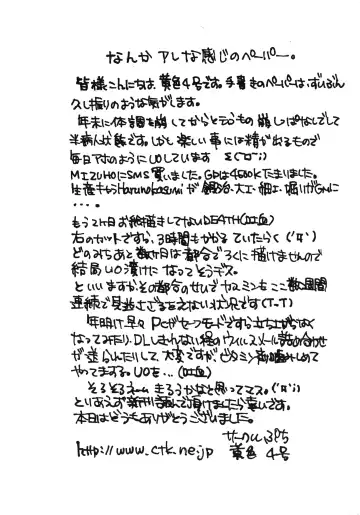 なんかアレな感じのペーパー。
皆様こんにちは黄色4号です。手書きのペーパーは、ずいぶん
久し振りのような気がします。
年末に体調を崩してからと言うもの崩しっぱなしで
半病人状態です。しかし楽しい事には精が出るもので
毎日アホのようにUOしています Σ(ロ°;)
MIZUHOにSMS買いました。GPは4500Kでした。
生産キャラHarunokasumiが鍛冶、大工、細工、掘りGMに
・・・。
もう2ヶ月お絵描きしてないDEATH(吐血)
右のカットですら、3時間もかかる ていたらく(;´Д`)
どのみちあと数ヶ月は都合でろくに描けませんので
結局UO漬けに なってそうデス。
といいますか、その都合のせいで ヤスミンもここ数週間
連続で見送らざるをえない状況です(T_T)
年明け早々PCがセーフモードですら立ち上がらなく
なってみたり、DLしきれない程のウィルスメール詰め合わせ
が送られたりして、大変ですが、ビタミン剤噛みしめて
やってますよ。UOを…(吐血)
そろそろネーム きろうかなと思ってマス。(;´Д`)
とりあえず新刊読んで頂けましたら幸いです。
本日はどうもありがとうございました。
http://www.ctk.ne.jp 黄色 4号